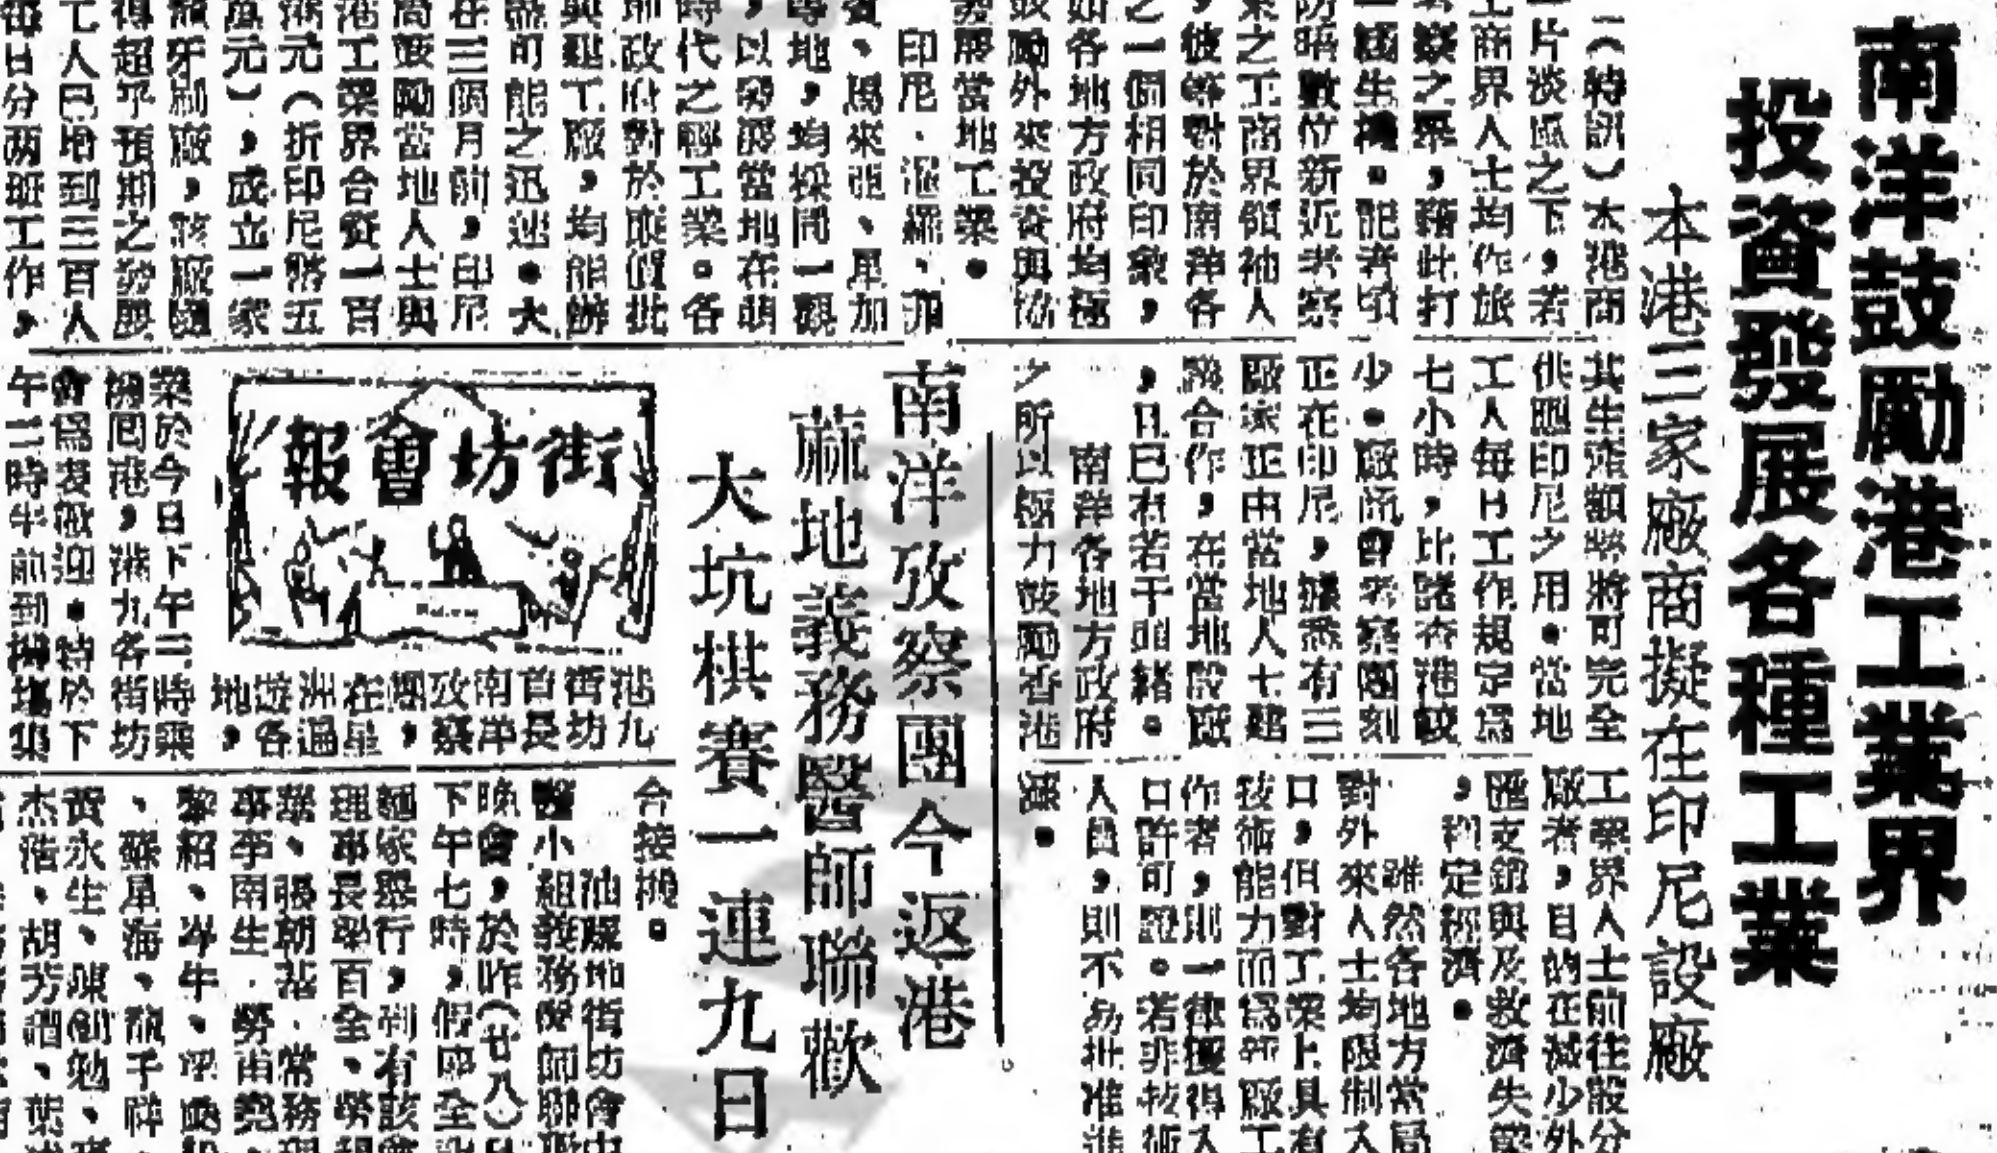 南洋鼓勵港工業界
投資發展各種工業
本港三家廠商擬在印尼設廠
(特訊)本港商
片淡風之下,若
商界人士均作旅
察之舉,藉此打
國生機。記者頃
防晤數位新近考察
業之工商界領袖人
,彼等對於南洋各
之一個相同印象,
如各地方政府均極
鼓勵外來投資與協
發展當地工業。
印尼、暹羅、菲
賓、馬來亞、星加
等地,均採同一觀
,以發展當地在萌
時代之輕工業。各
地政府對於廠價批
與建工廠,均能辦
盡可能之迅速。大
在三個月前,印尼
局鼓勵當地人士與
港工業界合資一百
萬元(折印尼幣五
萬元),成立一家
膠牙刷廠,該廠因
得超乎預期之發展
工人已增到三百人
每日分两班工作,
其生產額幣將可完全
供應印尼之用。當地
工人每日工作規定爲
七小時,比諸香港較
少。廠商會考察團刻
正在印尼,據悉有三
廠家正由當地人士建
議合作,在當地設廠
,且已有若干頭緒。
南洋各地方政府
之所以極力鼓勵香港
工業界人士前往設分
廠者,目的在減少外
匯支銷與及救濟失業
,利定經濟。
雖然各地方當局
對外來人士均限制入
口,但對工業上具有
技術能力而爲新廠工
作者,則一律獲得入
口許可證。若非技術
人員,則不易批准進
南洋攷察團今返港
蔴地義務醫師聯歡
大坑棋賽一連九日
街坊會報
港九
街坊
首長
南洋
攷察
團,
在星
洲遍
遊各
地,
業於今日下午三時乘
機回港,港九各街坊
會爲表歡迎。特於下
午二時半前到機塲集
合接機。
油蔴地街坊會中
醫小組義務醫師聯歡
晚會,於昨(廿八)日
下午七時,假座全記
麵家舉行,到有該會
理事長鄧百全、勞程
業、張朝基.常務理
事李南生.勞由堯、
黎紹、岑牛、
、蘇星海、龍子祥、
黃永生、陳劍勉、
杰偕、胡芳譜、葉